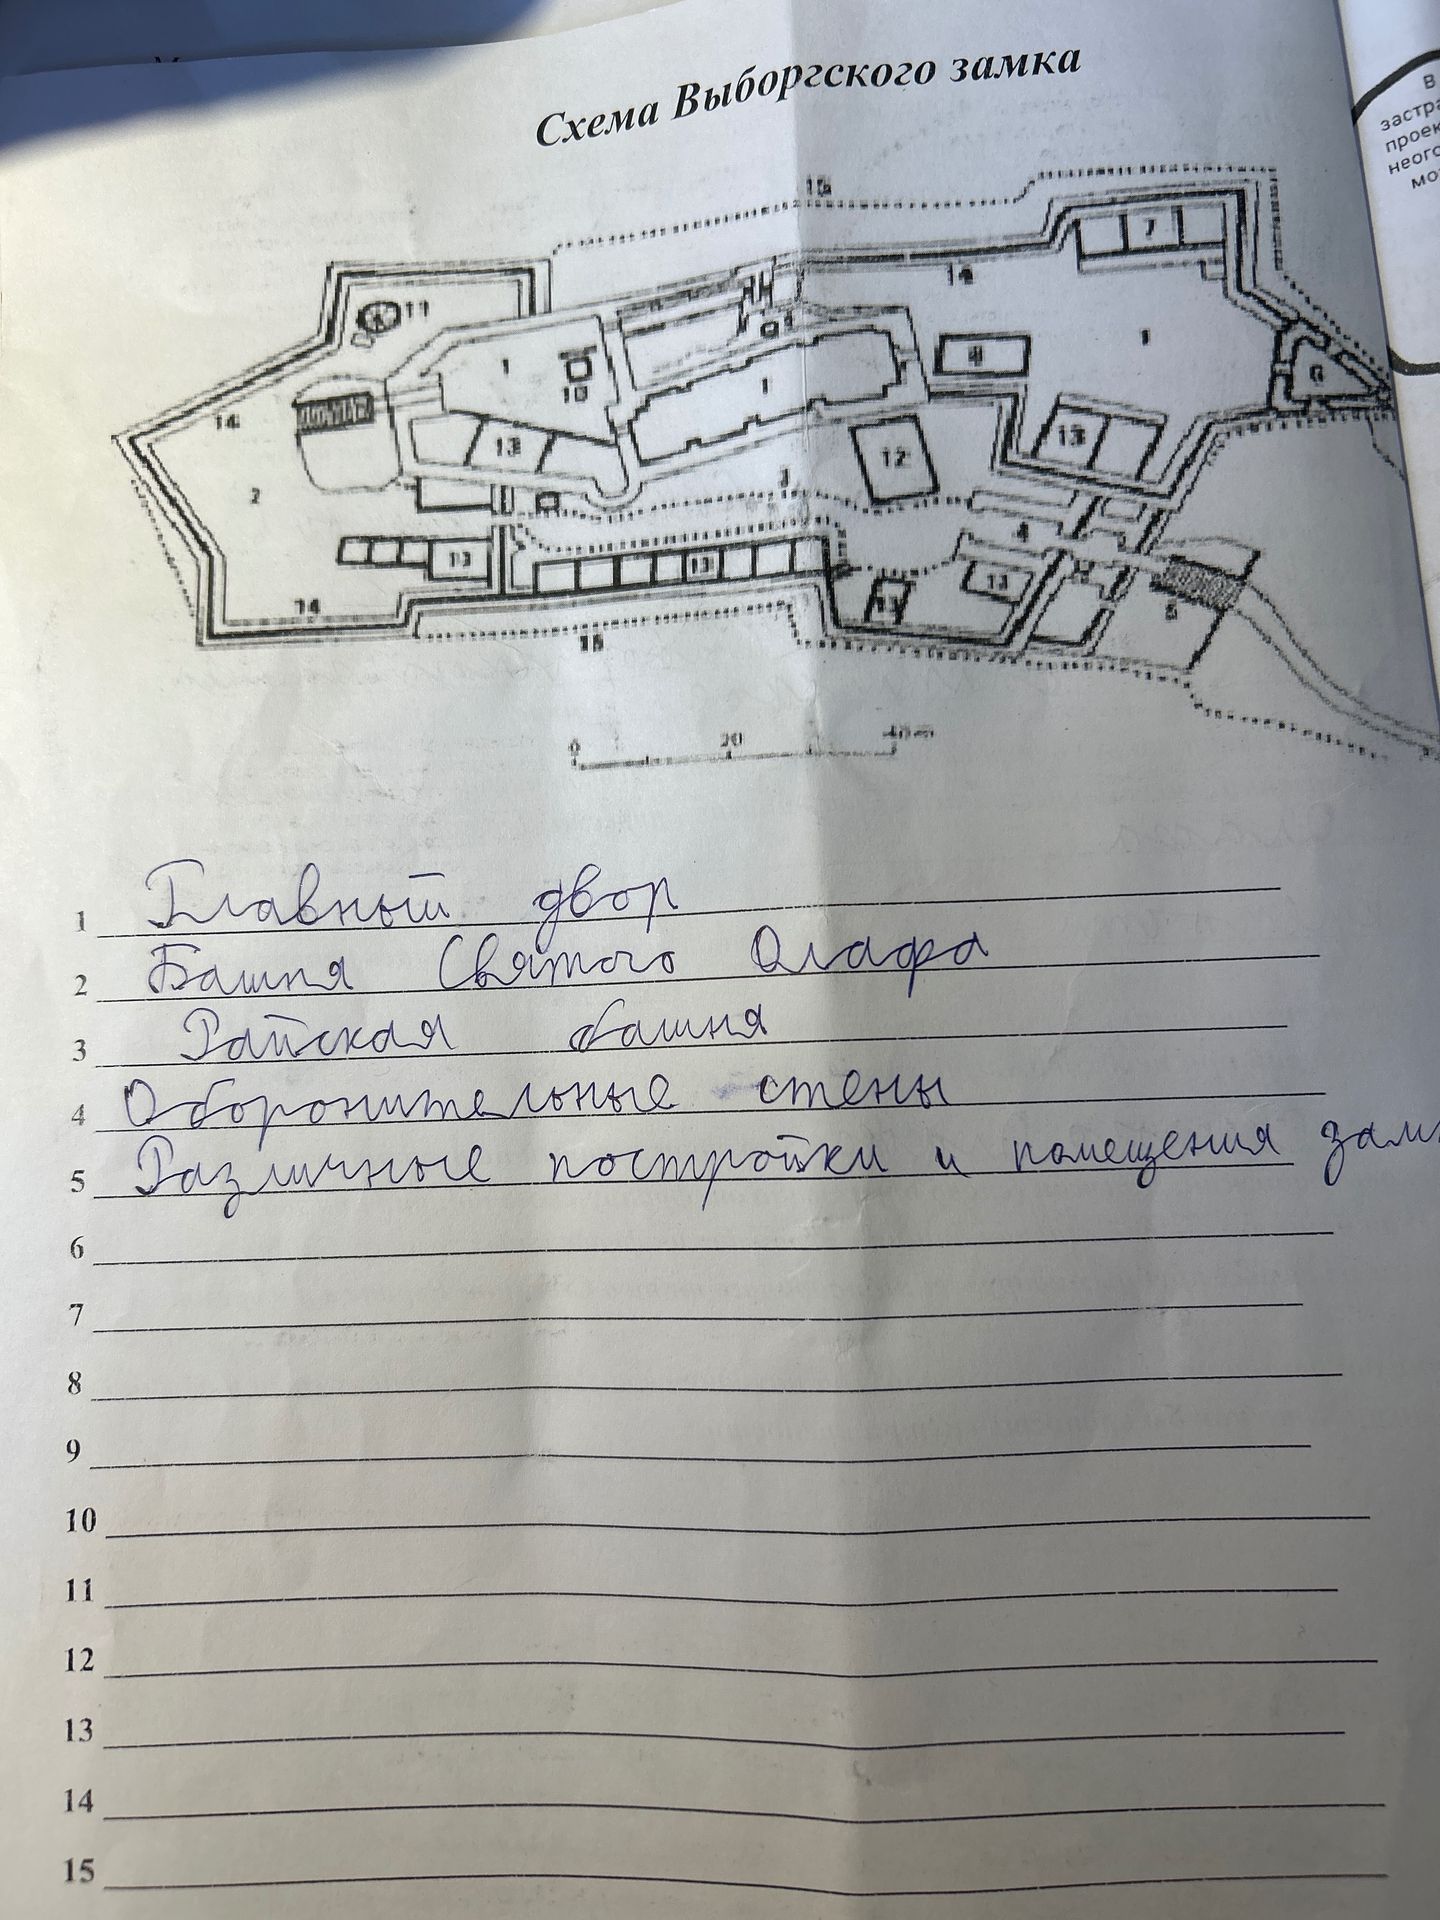 Схема Выборгского замка
В
застра
проек
неого
мо
15
7
14
11
1
1
1
10
8
6
14
13
12
13
2
3
4
13
13
13
13
5
14
15
0 20 40 m
1 Главный двор
2 Башня Святого Олафа
3 Райская башня
4 Оборонительные стены
5 Различные постройки и помещения зам
6
7
8
9
10
11
12
13
14
15